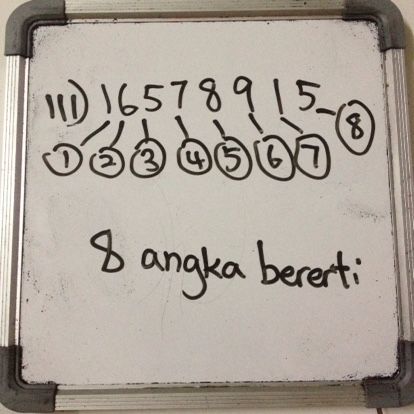 III) 16578915
1 2 3 4 5 6 7 8
8 angka bererti